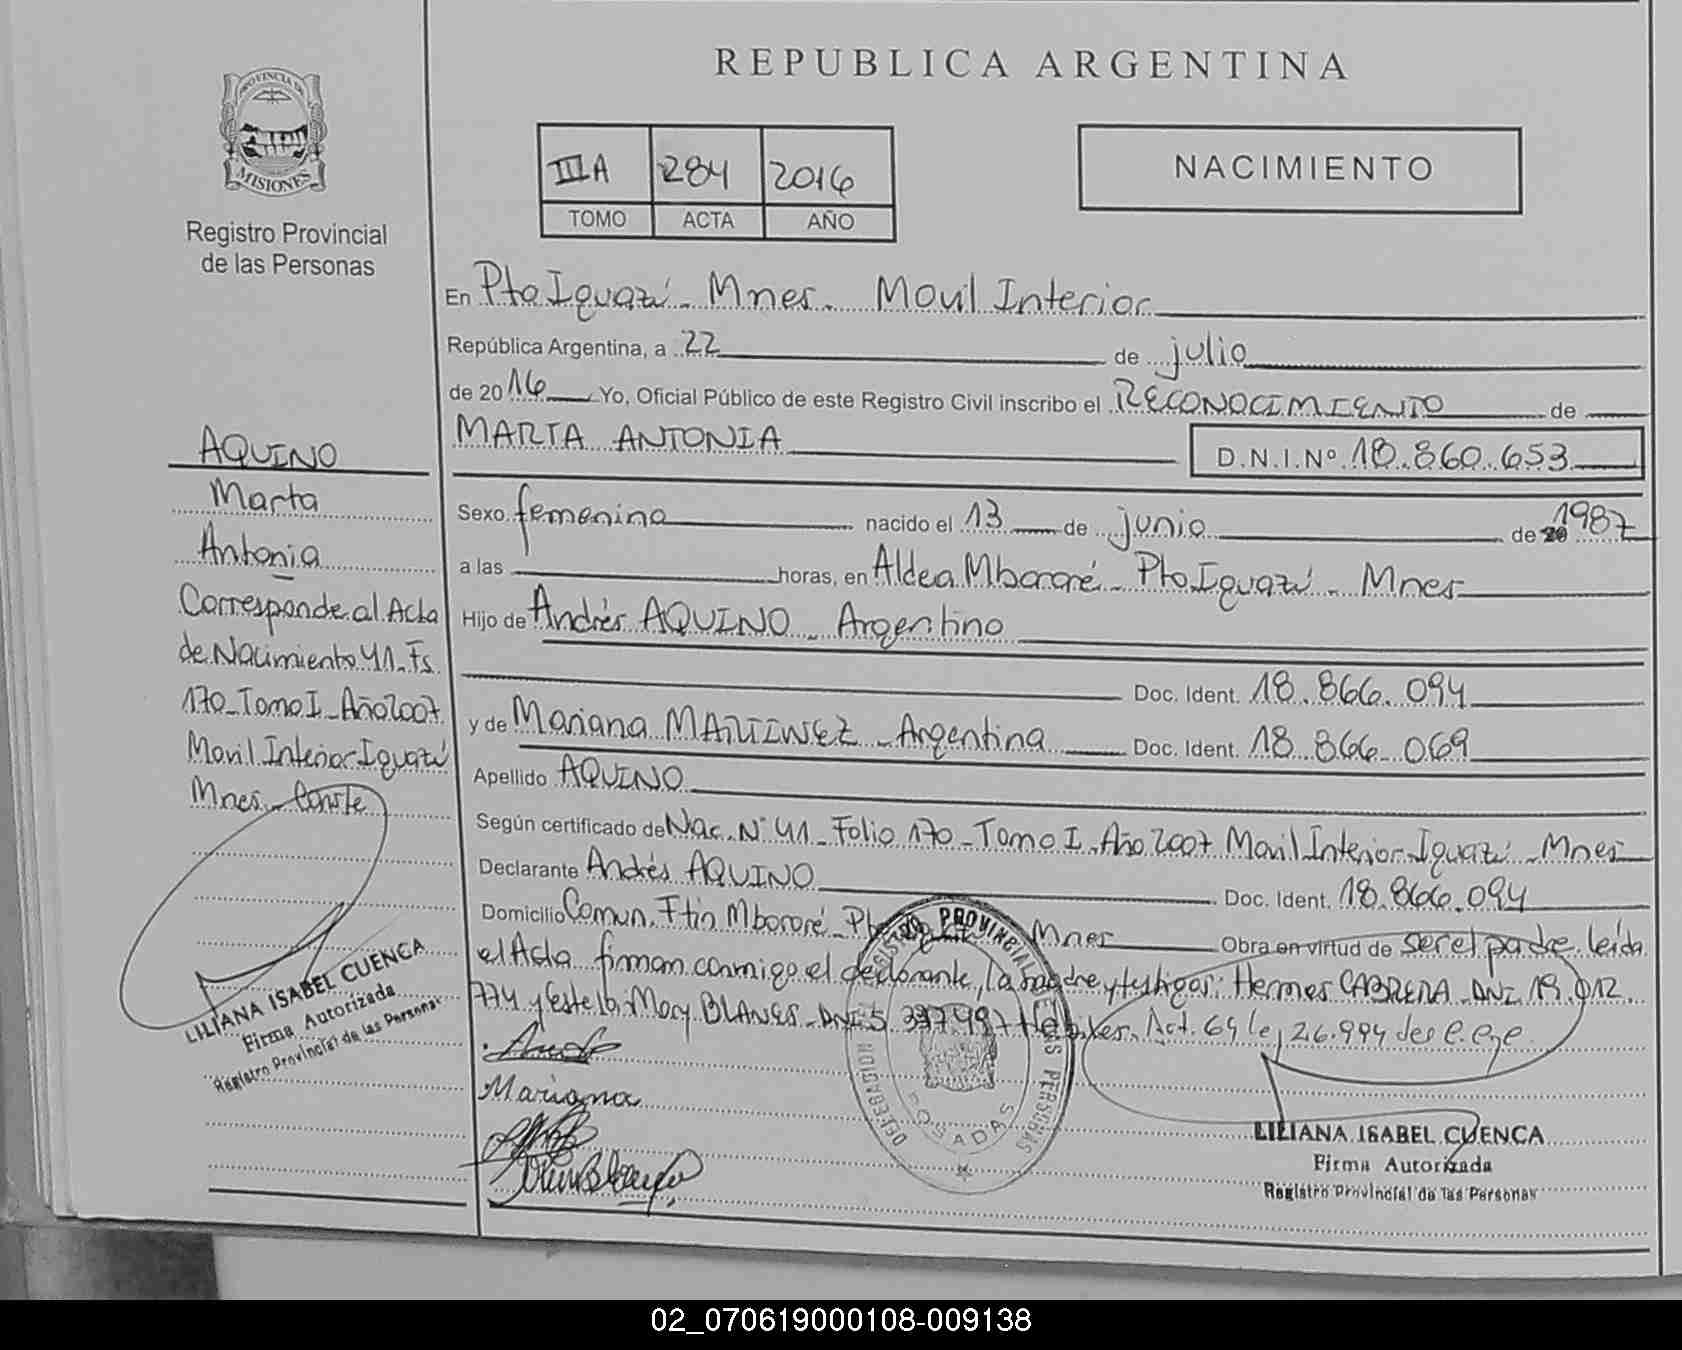 REPUBLICA ARGENTINA
PROVINCIA DE
MISIONES
Registro Provincial
de las Personas
IIIA 284 2016
TOMO ACTA AÑO
NACIMIENTO
En Pto Iguazú - Mnes. Movil Interior
República Argentina, a 22 de julio
de 2016 Yo, Oficial Público de este Registro Civil inscribo el RECONOCIMIENTO de
MARTA ANTONIA D.N.I.Nº 18.860.653
Sexo femenino nacido el 13 de junio de 1987
a las horas, en Aldea Mbororé - Pto Iguazú - Mnes
Hijo de Andrés AQUINO - Argentino
Doc. Ident. 18.866.094
y de Mariana MARTINEZ - Argentina Doc. Ident. 18.866.069
Apellido AQUINO
Según certificado de Nac. Nº 41 - Folio 170 - Tomo I - Año 2007 Movil Interior Iguazú - Mnes
Declarante Andrés AQUINO Doc. Ident. 18.866.094
Domicilio Comun. Mbororé - Mnes Obra en virtud de ser el padre. leída
el Acta firman conmigo el declarante, la madre y testigos: Hermes CABRERA - DNI 19.012.
774 y Estela Mary BLANES - DNI 5.337.497 Art. 64 26.994
Mariana
AQUINO
Marta
Antonia
Corresponde al Acta
de Nacimiento 41 - Fs.
170 - Tomo I - Año 2007
Movil Interior Iguazú
Mnes - Conste
LILIANA ISABEL CUENCA
Firma Autorizada
Registro Provincial de las Personas
REGISTRO PROVINCIAL DE LAS PERSONAS
DELEGACION
POSADAS
LILIANA ISABEL CUENCA
Firma Autorizada
Registro Provincial de las Personas
02_070619000108-009138